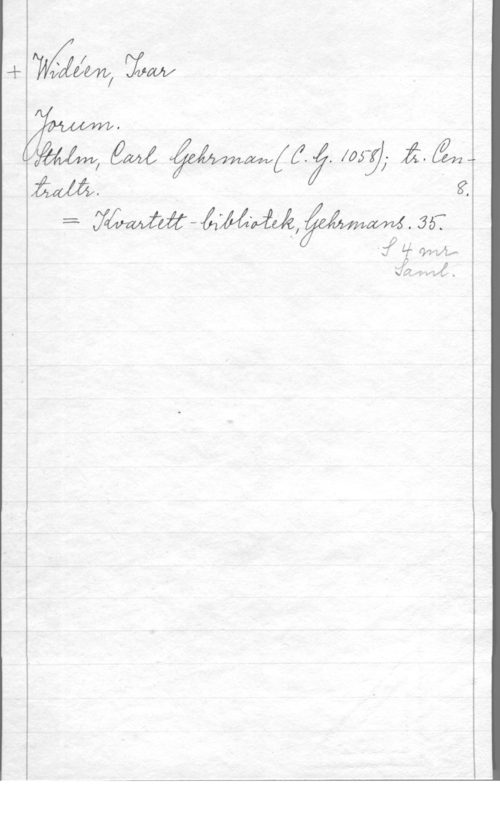 + Widéen, Ivar
Jorum.
Sthlm, Carl Gehrman (C. G. 1058); tr. Cen-
traltr. 8.
= Kvartett-bibliotek, Gehrmans. 35.
S 4 mr
Saml.